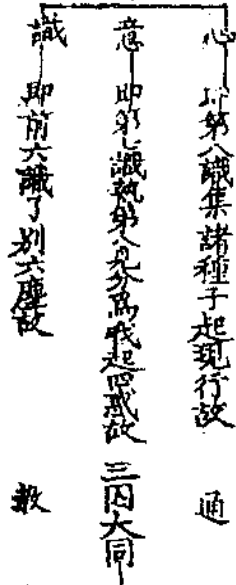 心　即第八識集諸種子起現行故　通
意　即第七識執第八見分為我起四惑故　三因大同
識　即前六識了別六塵故　教